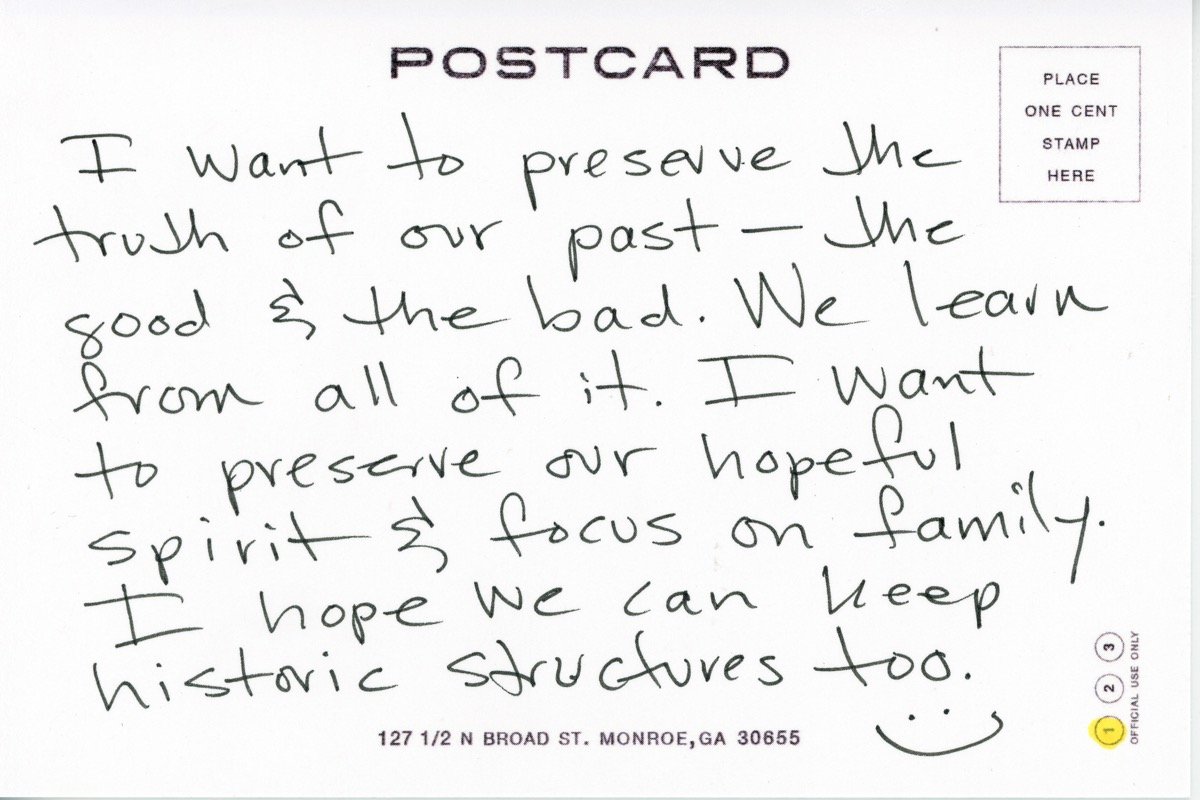 POSTCARD
PLACE
ONE CENT
STAMP
HERE
I want to preserve the
truth of our past — the
good & the bad. We learn
from all of it. I want
to preserve our hopeful
spirit & focus on family.
I hope we can keep
historic structures too.
127 1/2 N BROAD ST. MONROE, GA 30655
1 2 3
OFFICIAL USE ONLY